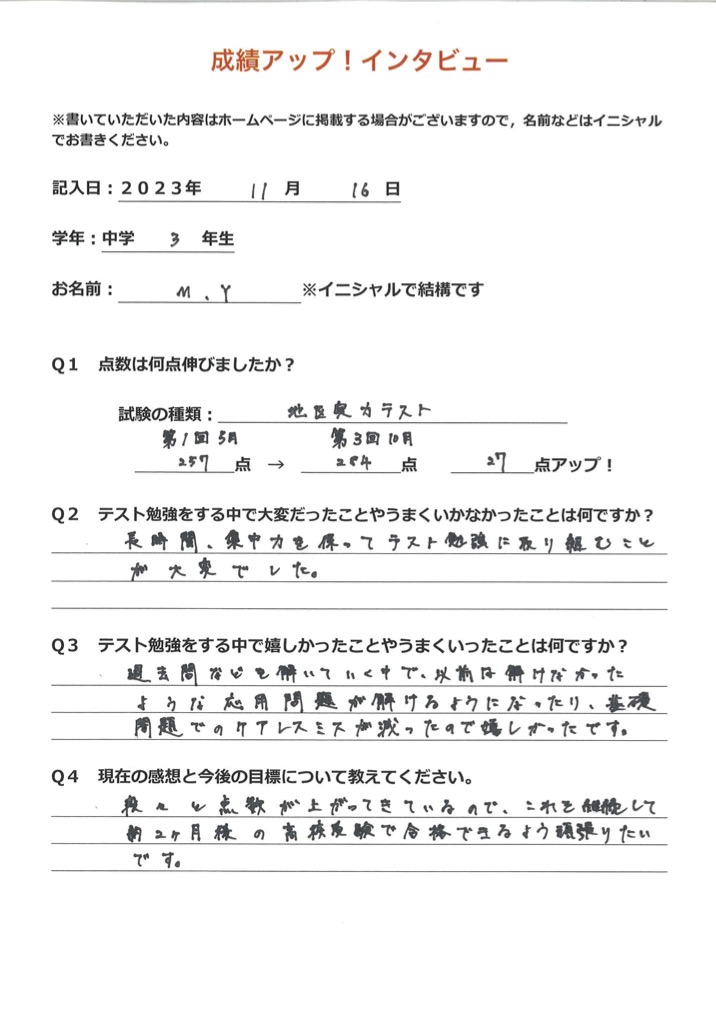 成績アップ！インタビュー
※書いていただいた内容はホームページに掲載する場合がございますので，名前などはイニシャル
でお書きください。
記入日：２０２３年 11 月 16 日
学年：中学 3 年生
お名前： M.Y ※イニシャルで結構です
Ｑ１ 点数は何点伸びましたか？
試験の種類： 地区実力テスト
第1回5月 第3回10月
257 点 → 284 点 27 点アップ！
Ｑ２ テスト勉強をする中で大変だったことやうまくいかなかったことは何ですか？
長時間、集中力を保ってテスト勉強に取り組むこと
が大変でした。
Ｑ３ テスト勉強をする中で嬉しかったことやうまくいったことは何ですか？
過去問などを解いていく中で、以前は解けなかった
ような応用問題が解けるようになったり、基礎
問題でのケアレスミスが減ったので嬉しかったです。
Ｑ４ 現在の感想と今後の目標について教えてください。
段々と点数が上がってきているので、これを継続して
約2ヶ月後の高校受験で合格できるよう頑張りたい
です。